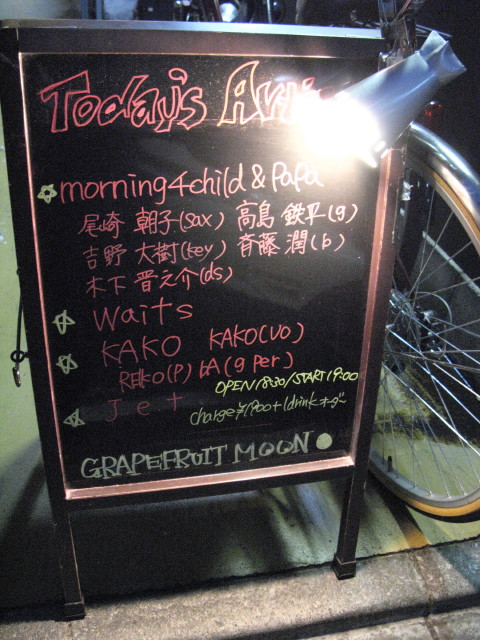 Today's
morning4child & Papa
尾崎 朝子(sax) 高島 鉄平(g)
吉野 大樹(key) 斉藤 潤(b)
木下 晋之介(ds)
Waits
KAKO KAKO(vo)
REIKO(P) bA(g per)
OPEN18:30/START19:00
Jet
charge ¥1900+1drinkオーダー
GRAPEFRUIT MOON